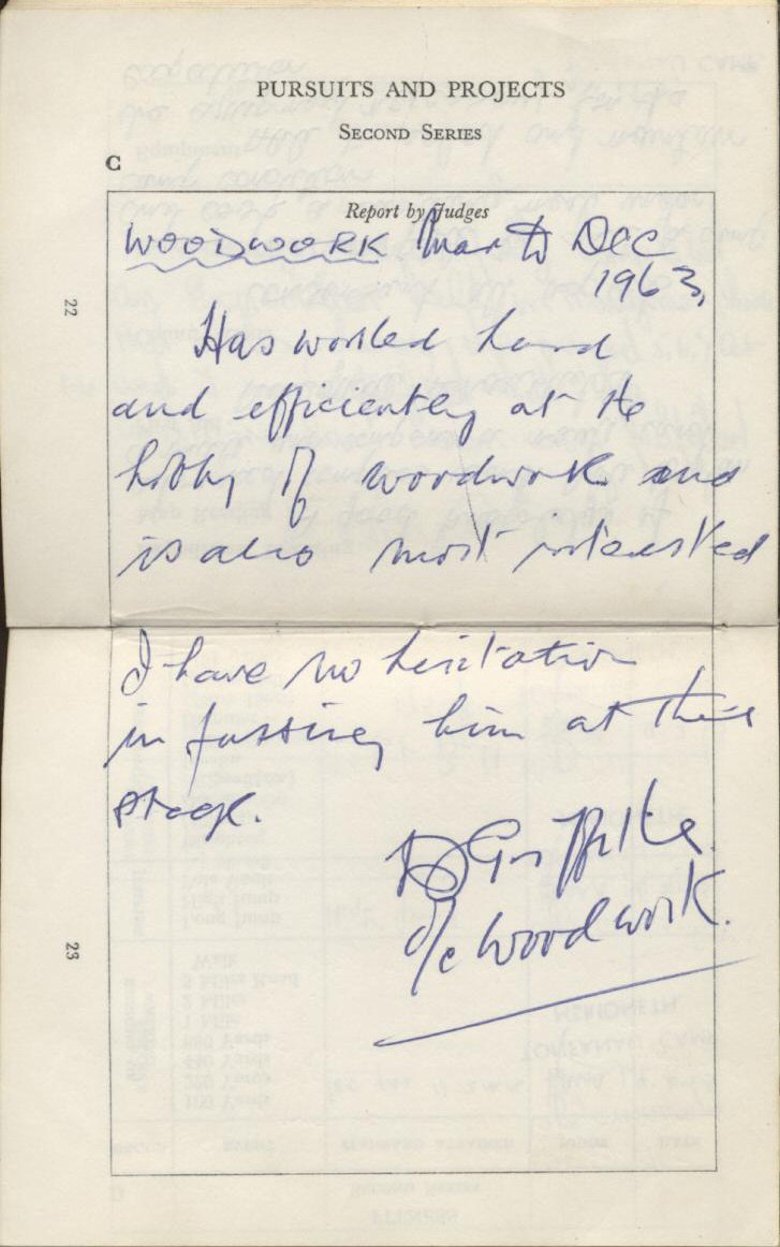 PURSUITS AND PROJECTS
SECOND SERIES
C
Report by Judges
WOODWORK Mar to Dec
1963,
22
Has worked hard
and efficiently at the
hobby of woodwork and
is also most interested
I have no hesitation
in passing him at this
stage.
D Griffiths.
O/c Woodwork.
23